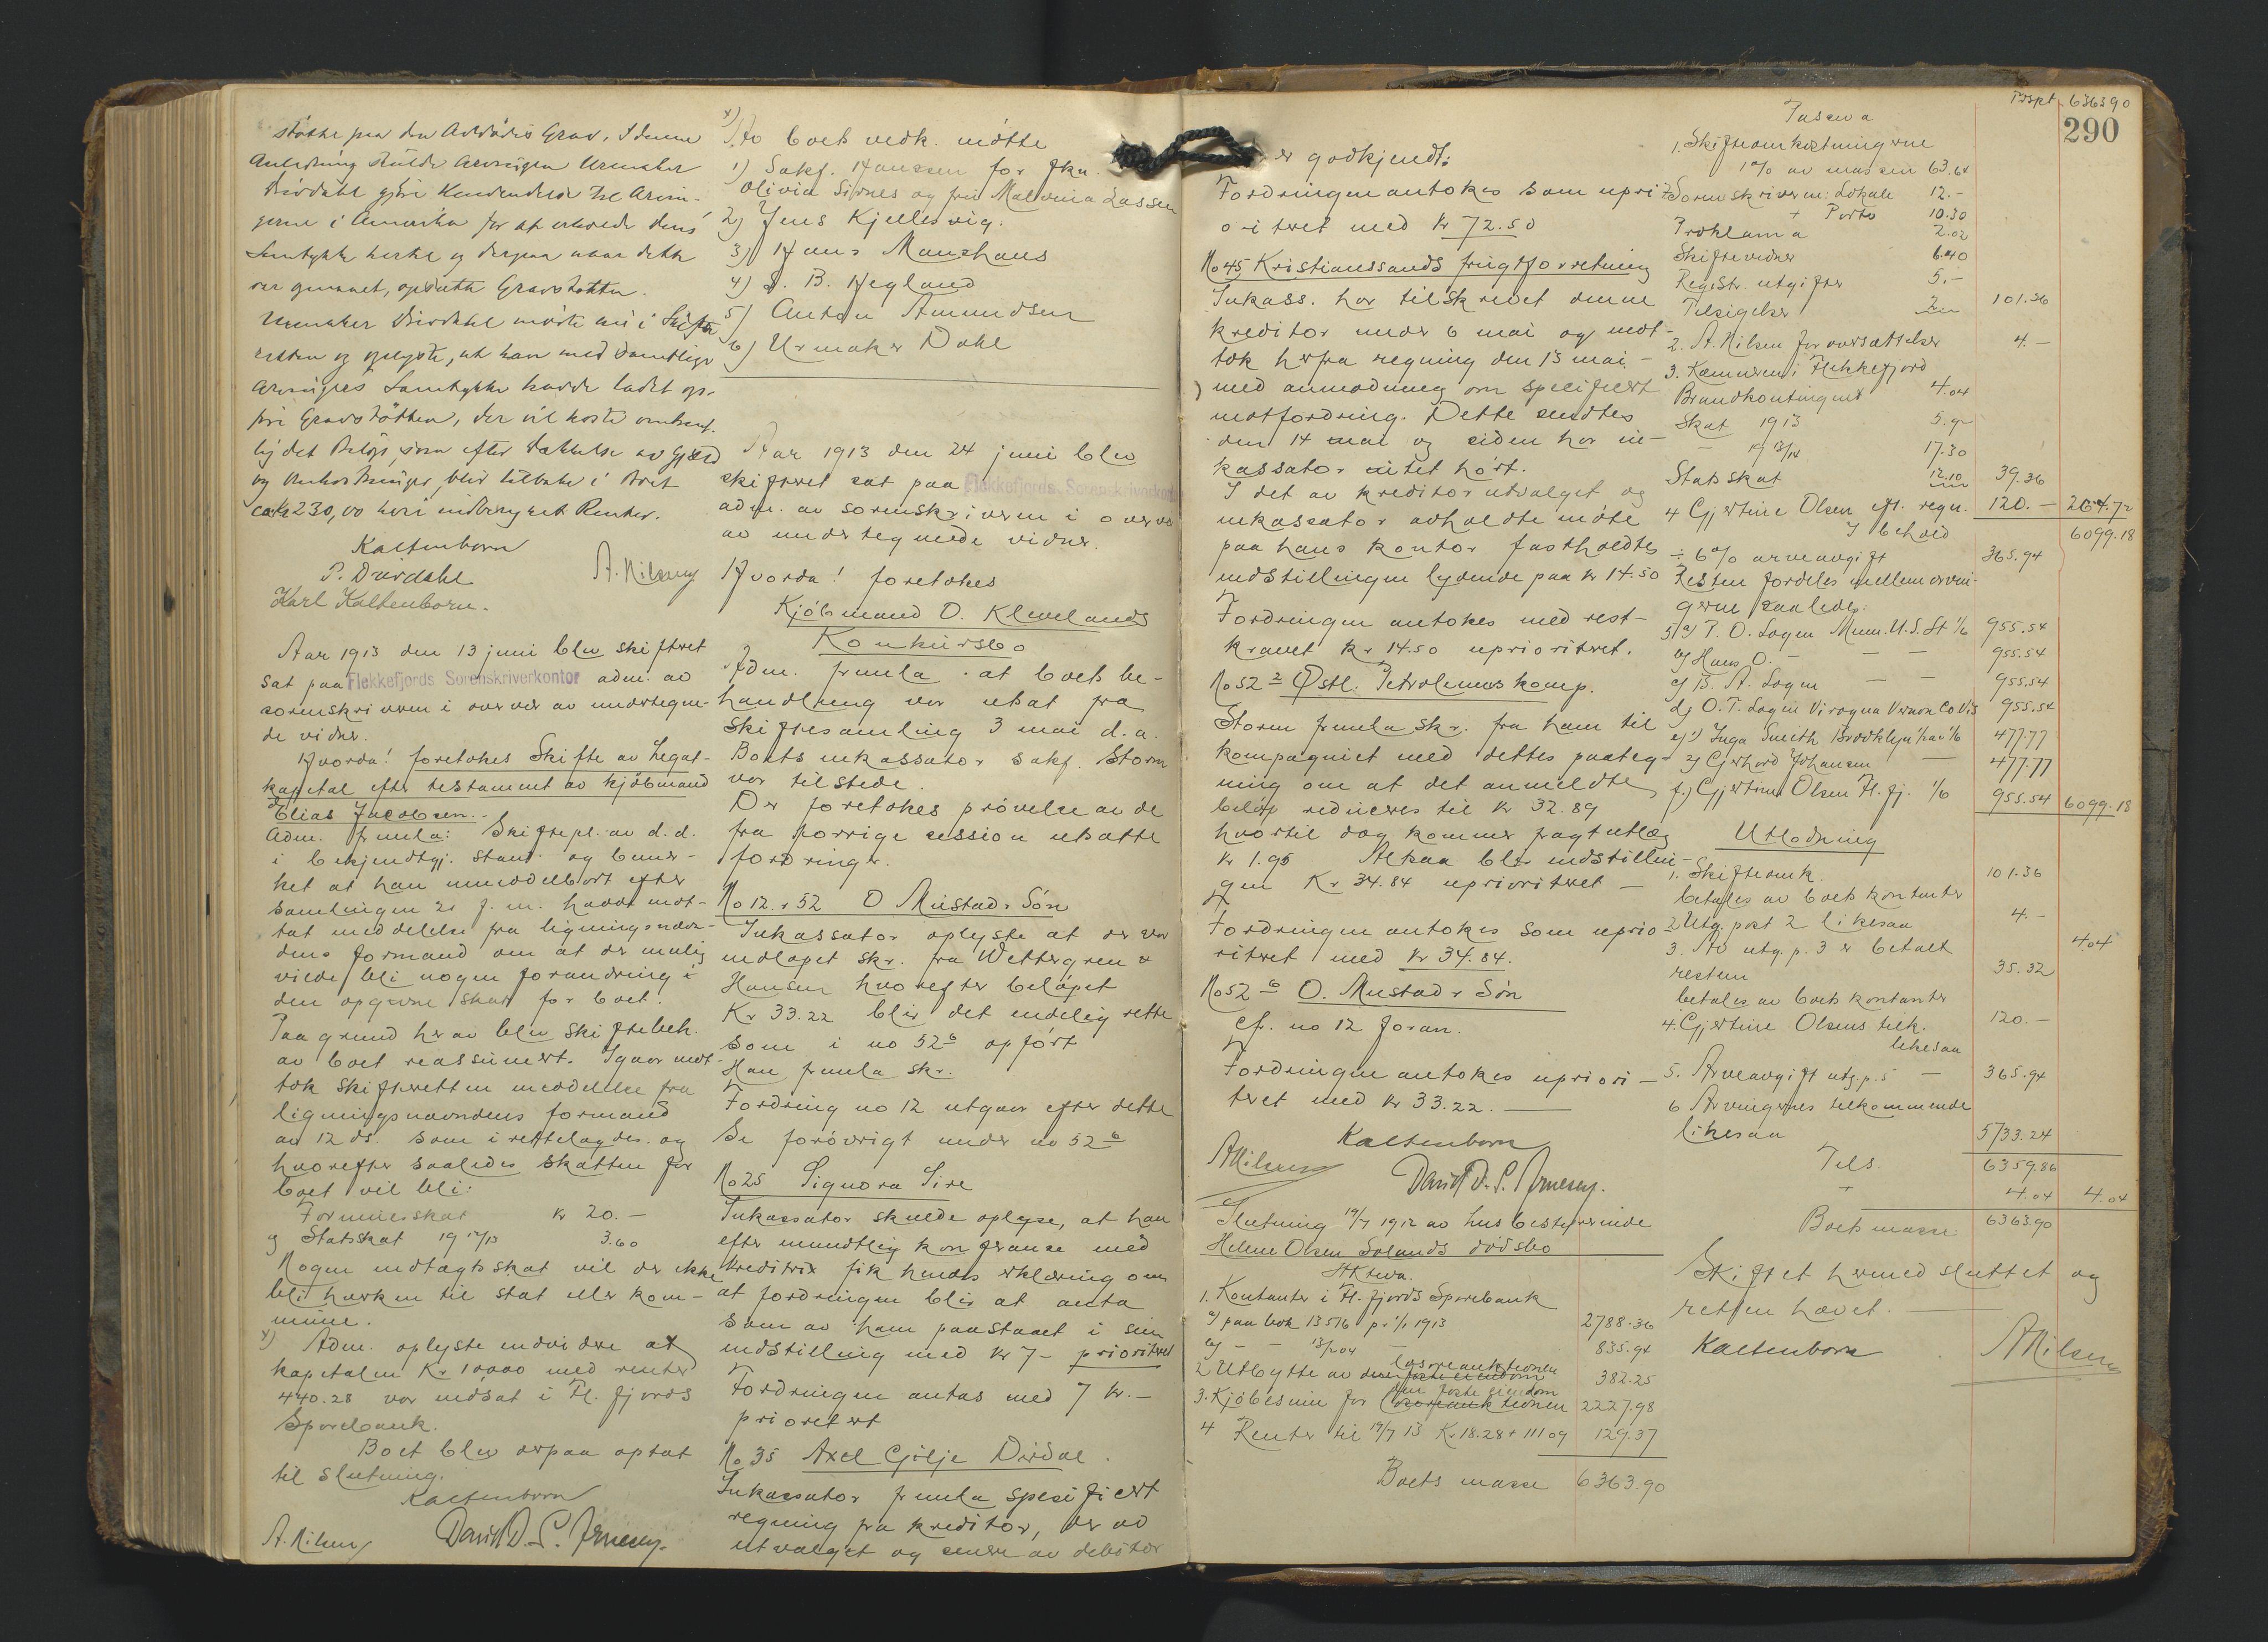 støtte paa den Avdødes Grav. I denne
Anledning skulde Arvingen Urmaker
Diirdahl gjøre Henvendelse til Arvin-
gerne i Amerika for at erhverve deres
Samtykke hertil og derpaa naar dette
var gunnet, opsætte Gravstøtten.
Urmaker Diirdahl møtte nu i Skifte
retten og oplyste, at han med samtlige
Arvingers Samtykke havde ladet op-
føre Gravstøtten, der vil koste omtrent-
lig det Beløp, som efter Dækkelse av Gjæld
og Omkostninger, blir tilbake i Boet
ca Kr 230,00 heri indberegnet Renter.
Kaltenborn
P. Diirdahl A. Nilsen
Karl Kaltenborn.
Aar 1913 den 13 juni blev skifteret
sat paa Flekkefjords Sorenskriverkontor adm. av
sorenskriveren i overvær av undertegne-
de vidner.
Hvorda! foretokes Skifte av Legat-
kapital efter testament av kjøbmand
Elias Jacobsen.
Adm. fremla: Skiftepl. av d. d.
i bekjendtgj. stand og bemer-
ket at han umiddelbart efter
samlingen 21 f. m. havde mot-
tat meddelelse fra ligningsnævn-
dens formand om at der mulig
vilde bli nogen forandring i
den opgivne skat for boet.
Paa grund herav blev skiftebeh.
av boet reassumert. Igaar mot-
tok skifteretten meddelelse fra
ligningsnævndens formand
av 12 ds. som irettelagdes og
hvorefter saaledes skatten for
boet vil bli:
Formueskat kr 20.-
og Statsskat 1912/13 3.60
Nogen indtægtsskat vil der ikke
bli hverken til stat eller kom-
mune.
x) Adm. oplyste endvidere at
kapitalen Kr 10000 med renter
440.28 var indsat i Fl. fjords
Sparebank.
Boet blev derpaa optat
til slutning.
Kaltenborn
A. Nilsen David D. S. Arnesen.
x) For boets vedk. møtte
1) Sakf. Hanssen for fkn.
Olivia Sirnes og fru Malvina Lassen
2) Jens Kjellesvig.
3) Hans Monshaus
4) S. B. Hegland
5) Anton Amundsen
6) Urmaker Dahl
Aar 1913 den 24 juni blev
skifteret sat paa Flekkefjords Sorenskriverkontor
adm. av sorenskriveren i overvær
av undertegnede vidner.
Hvorda! foretokes
Kjöbmand O. Klevelands
Konkursbo
Adm. fremla. at boets be-
handling var utsat fra
skiftesamling 3 mai d. a.
Boets inkassator sakf. Storm
var tilstede.
Der foretokes prøvelse av de
fra forrige session utsatte
fordringer.
No 12. & 52 O Mustad & Søn
Inkassator oplyste at der var
indløpet skr. fra Wettergren &
Hansen hvorefter beløpet
Kr 33.22 blir det endelig rette
som i no 52 6 opført
Han fremla skr.
Fordring no 12 utgaar efter dette
Se forøvrigt under no 52 6
No 25 Signora Sire
Inkassator skulde oplyse, at han
efter mundtlig konferanse med
kreditrix fik hendes erklæring om
at fordringen blir at anta
som av ham paastaaet i sin
indstilling med kr 7- prioritet
Fordringen antas med 7 kr.-
prioritert
No 35 Axel Gjilje Dirdal.
Inkassator fremla spesifiert
regning fra kreditor, der av
utvalget og senere av debitor
er godkjendt.
Fordringen antokes som upri-
oritert med kr 72.50
No 45 Kristianssands frugtforretning
Inkass. har tilskrevet denne
kreditor under 6 mai og mot-
tok herfra regning den 13 mai -
med anmodning om specifiert
motfordring. Dette sendtes
den 14 mai og siden har in-
kassator intet hørt.
I det av kreditorutvalget og
inkassator avholdte møte
paa hans kontor fastholdtes
indstillingen lydende paa kr 14.50
Fordringen antokes med rest-
kravet kr 14.50 uprioritert.
No 52 2 Østl. Petroleums komp.
Storm fremla skr. fra ham til
kompagniet med dettes paateg-
ning om at det anmeldte
beløp reduceres til kr 32.89
hvortil dog kommer fragtutlæg
kr 1.95 Altsaa blir indstillin-
gen Kr 34.84 uprioritert -
Fordringen antokes som uprio
ritert med kr 34.84.
No 52 6 O. Mustad & Søn
cf. no 12 foran.
Fordringen antokes upriori-
tert med kr 33.22.
Kaltenborn
A Nilsen David D. S. Arnesen.
Slutning 19/7 1912 av husbestyrerinde
Helene Olsen Solands dødsbo
Aktiva.
1. Kontanter i Fl. fjords Sparebank
a) paa bok 13516 pr 1/1 1913 2788.36
b) - - 13/204 - 835.94
2 Utbytte av løsøreauktionen 382.25
3. Kjøbesum for den faste eiendom 2227.98
4 Renter til 19/7 13 Kr. 18.28 + 111 09 129.37
Boets masse 6363.90
Trspt 6363 90
290
Passiva
1. Skifteomkostningerne
1% av massen 63.64
Sorenskriveren: Lokale 12.-
+ Porto 10.30
Proklama 2.02
Skiftevidner 6.40
Registr. utgifter 5.-
Tilsigelser 2.- 101.36
2. A. Nilsen for oversættelser 4.-
3. Kæmneren i Flekkefjord
Brandkontingent 4.04
Skat 1913 5.92
- 1913/14 17.30
Statsskat 12.10 39.36
4 Gjertine Olsen eft. regn. 120.- 264.72
I behold 6099.18
÷ 6% arveavgift 365.94
Resten fordeles mellem arvin-
gerne saaledes:
5 a) P. O. Logen Mum. U. S. St 1/6 955.54
b) Hans O. - - - 955.54
c) B. A. Logen - - 955.54
d) O. T. Logen Viroqua Vernon Co Vis 955.54
e) 1) Inga Smith Brooklyn 1/2 av 1/6 477.77
2) Gjerhard Johansen - 477.77
f.) Gjertine Olsen Fl. fj. 1/6 955.54 6099.18
Utlodning
1. Skifteomk. 101.36
betales av boets kontanter
2 Utg. post 2 likesaa 4.-
3. Av utg. p. 3 er betalt 4.04
resten 35.32
betales av boets kontanter
4. Gjertine Olsens tilk. 120.-
likesaa
5. Arveavgift utg. p. 5 - 365.94
6 Arvingernes tilkommende
likesaa 5733.24
Tils. 6359.86
+ 4.04 4.04
Boets masse: 6363.90
Skiftet hermed sluttet og
retten hævet.
Kaltenborn A Nilsen